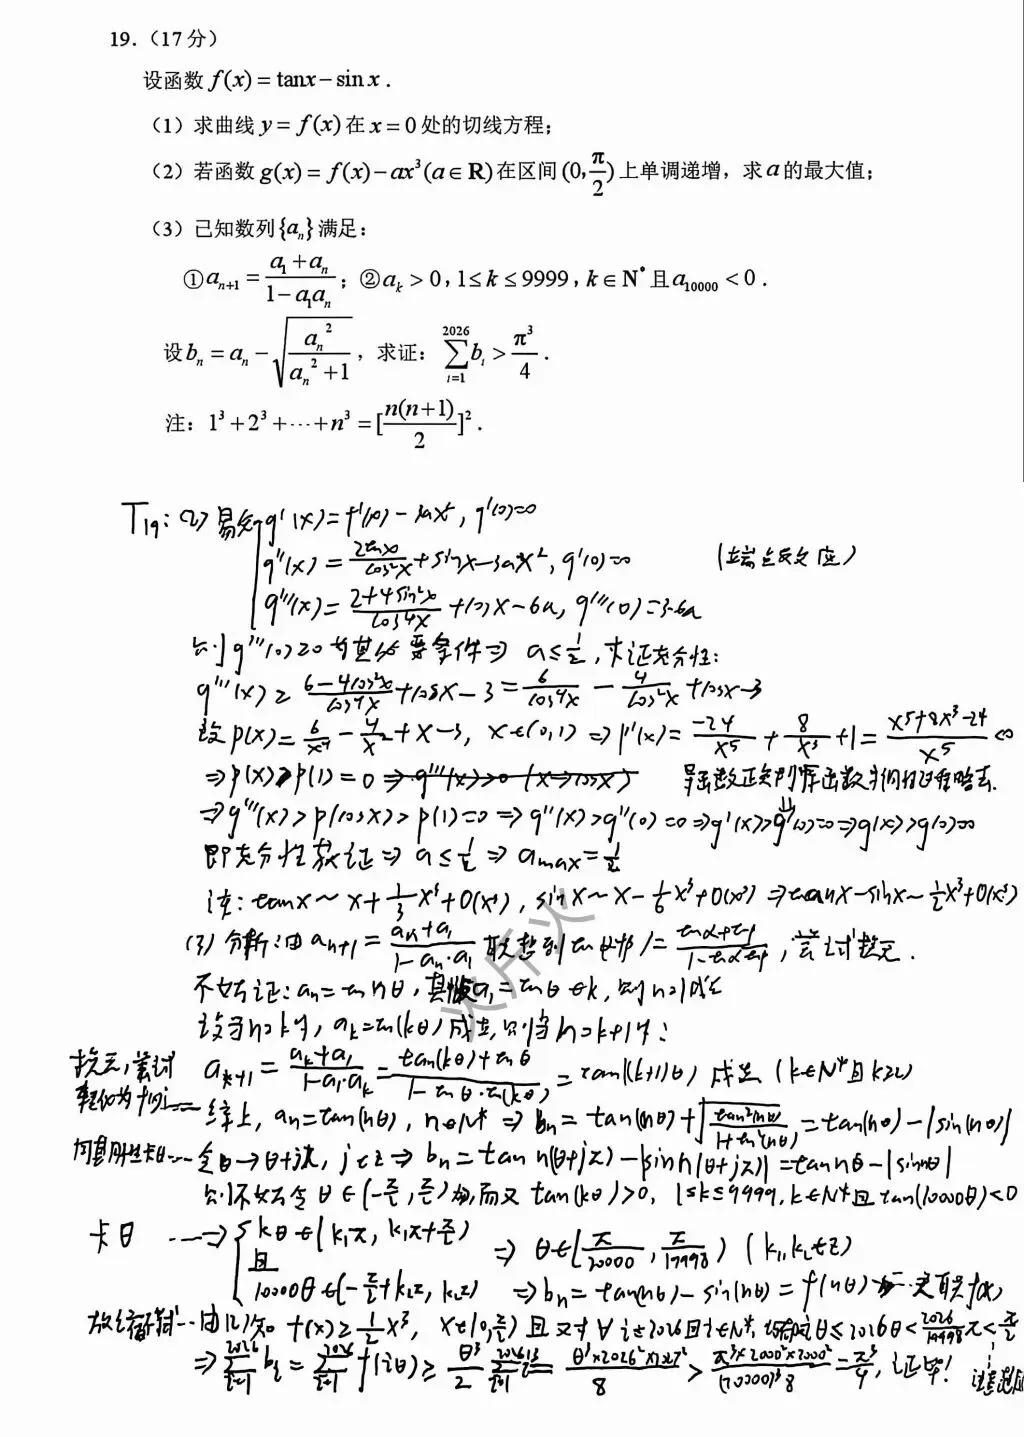 19.（17分）
设函数 f(x) = tanx − sin x .
（1）求曲线 y = f(x) 在 x = 0 处的切线方程；
（2）若函数 g(x) = f(x) − ax³(a ∈ R) 在区间 (0, π/2) 上单调递增，求 a 的最大值；
（3）已知数列{aₙ}满足：
①aₙ₊₁ = (a₁ + aₙ)/(1 − a₁aₙ)；②aₖ > 0, 1 ≤ k ≤ 9999, k ∈ N* 且 a₁₀₀₀₀ < 0 .
设 bₙ = aₙ − √(aₙ²/(aₙ² + 1))，求证：∑_{i=1}^{2026} bᵢ > π³/4 .
注：1³ + 2³ + ⋯ + n³ = [n(n+1)/2]² .
T19: (2) 易知 g'(x) = f'(x) − 3ax², g'(0)=0
g''(x) = 2tanx/cos²x + sinx − 6ax, g''(0)=0 （端点效应）
g'''(x) = (2+4sin²x)/cos⁴x + cosx − 6a, g'''(0) = 3−6a
则 g'''(0)≥0 为其必要条件 ⇒ a ≤ 1/2, 求证充分性:
g'''(x) ≥ (6−4cos²x)/cos⁴x + cosx − 3 = 6/cos⁴x − 4/cos²x + cosx − 3
设 p(x) = 6/x⁴ − 4/x² + x − 3, x∈(0,1) ⇒ p'(x) = −24/x⁵ + 8/x³ + 1 = (x⁵+8x²−24)/x⁵ < 0
⇒ p(x) > p(1) = 0
⇒ g'''(x) > p(cosx) > p(1) = 0 ⇒ g''(x) > g''(0) = 0 ⇒ g'(x) > g'(0) = 0 ⇒ g(x) > g(0) = 0
即充分性获证 ⇒ a ≤ 1/2 ⇒ amax = 1/2
注: tanx ~ x + 1/3 x³ + O(x³), sinx ~ x − 1/6 x³ + O(x³) ⇒ tanx − sinx ~ 1/2 x³ + O(x³)
(3) 分析: 由 aₙ₊₁ = (aₙ+a₁)/(1−aₙ·a₁) 联想到 tan(α+β) = (tanα+tanβ)/(1−tanαtanβ), 尝试换元.
不妨证: aₙ = tan nθ, 其中 a₁ = tanθ, 则 n=1成立
设当 n=k时, aₖ = tan(kθ) 成立, 则当 n=k+1时:
换元, 尝试
aₖ₊₁ = (aₖ+a₁)/(1−a₁·aₖ) = (tan(kθ)+tanθ)/(1−tanθ·tan(kθ)) = tan((k+1)θ) 成立 (k∈N*且k≥2)
综上, aₙ = tan(nθ), n∈N* ⇒ bₙ = tan(nθ) + √(tan²(nθ)/(1+tan²(nθ))) = tan(nθ) − |sin(nθ)|
令θ→θ+jπ, j∈Z ⇒ bₙ = tan n(θ+jπ) − |sin n(θ+jπ)| = tan nθ − |sin nθ|
则不妨令 θ∈(−π/2, π/2), 而又 tan(kθ)>0, 1≤k≤9999, k∈N*且 tan(10000θ)<0
卡θ ⇒ { kθ∈(k₁π, k₁π+π/2)
且 ⇒ θ∈(π/20000, π/19998) (k₁,k₂∈Z)
10000θ∈(−π/2+k₂π, k₂π) ⇒ bₙ = tan(nθ) − sin(nθ) = f(nθ)
放缩 由(2)知 f(x) ≥ 1/2 x³, x∈(0, π/2) 且又对∀i≤2026且i∈N*, iθ ≤ 2026θ < 2026/19998 π < π/2
⇒ ∑_{i=1}^{2026} bᵢ = ∑_{i=1}^{2026} f(iθ) ≥ θ³/2 ∑_{i=1}^{2026} i³ = θ³×2026²×2027²/8 > π³×2000²×2000²/((20000)³·8) = π³/4, 证毕!